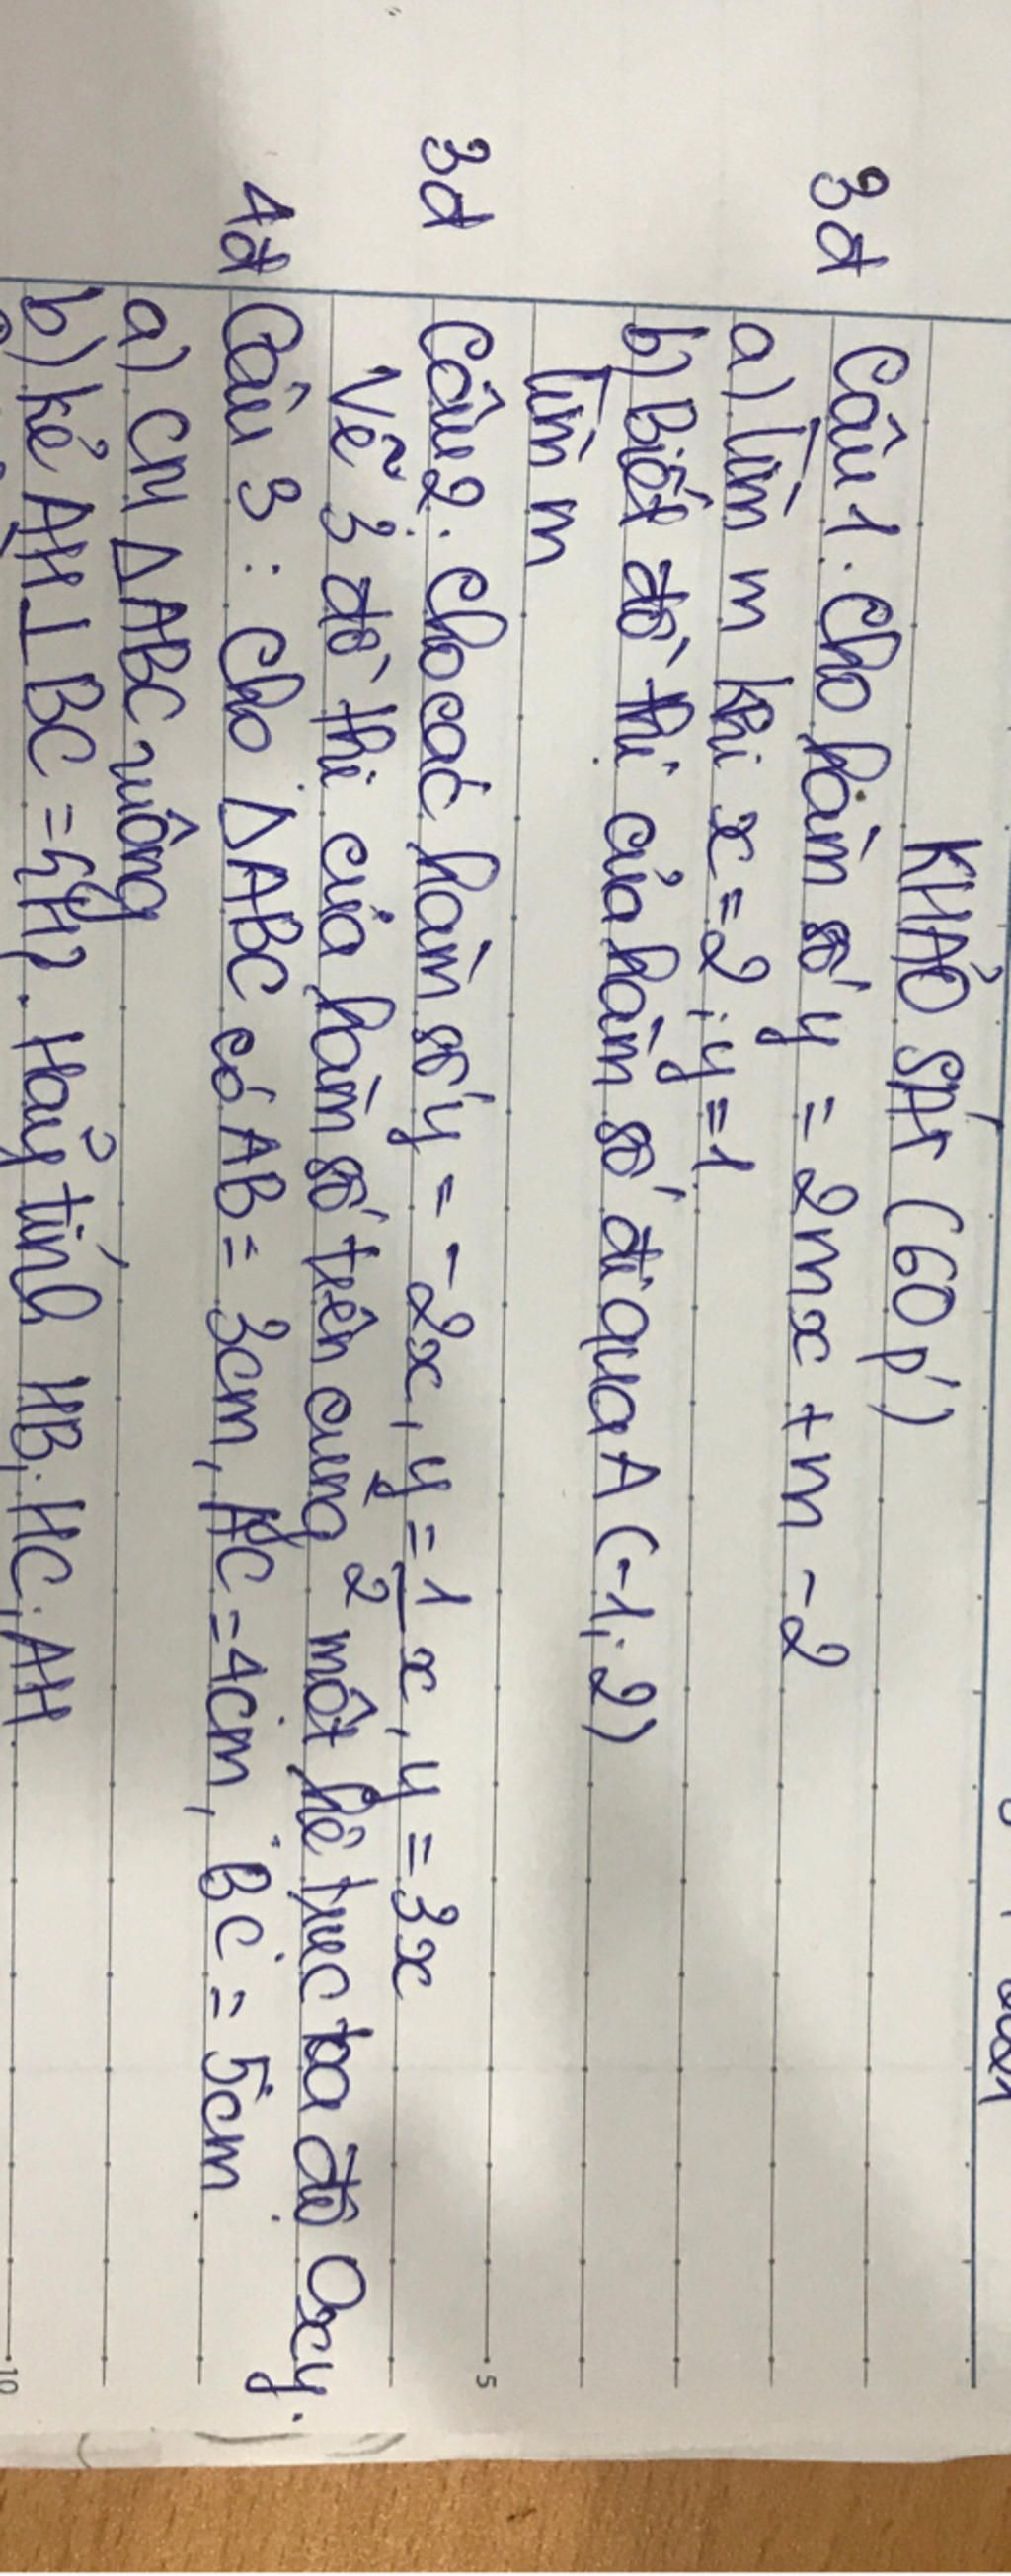 KHẢO SÁT (60 p')
3đ Câu 1: Cho hàm số y = 2mx + m - 2
a) Tìm m khi x = 2; y = 1
b) Biết đồ thị của hàm số đi qua A (-1; 2)
Tìm m
3đ Câu 2: Cho các hàm số y = -2x, y = 1/2 x, y = 3x
Vẽ 3 đồ thị của hàm số trên cùng một hệ trục tọa độ Oxy.
4đ Câu 3: Cho ΔABC có AB = 3cm, AC = 4cm, BC = 5cm
a) CM ΔABC vuông
b) kẻ AH ⊥ BC = {H}. Hãy tính HB, HC, AH
5
10